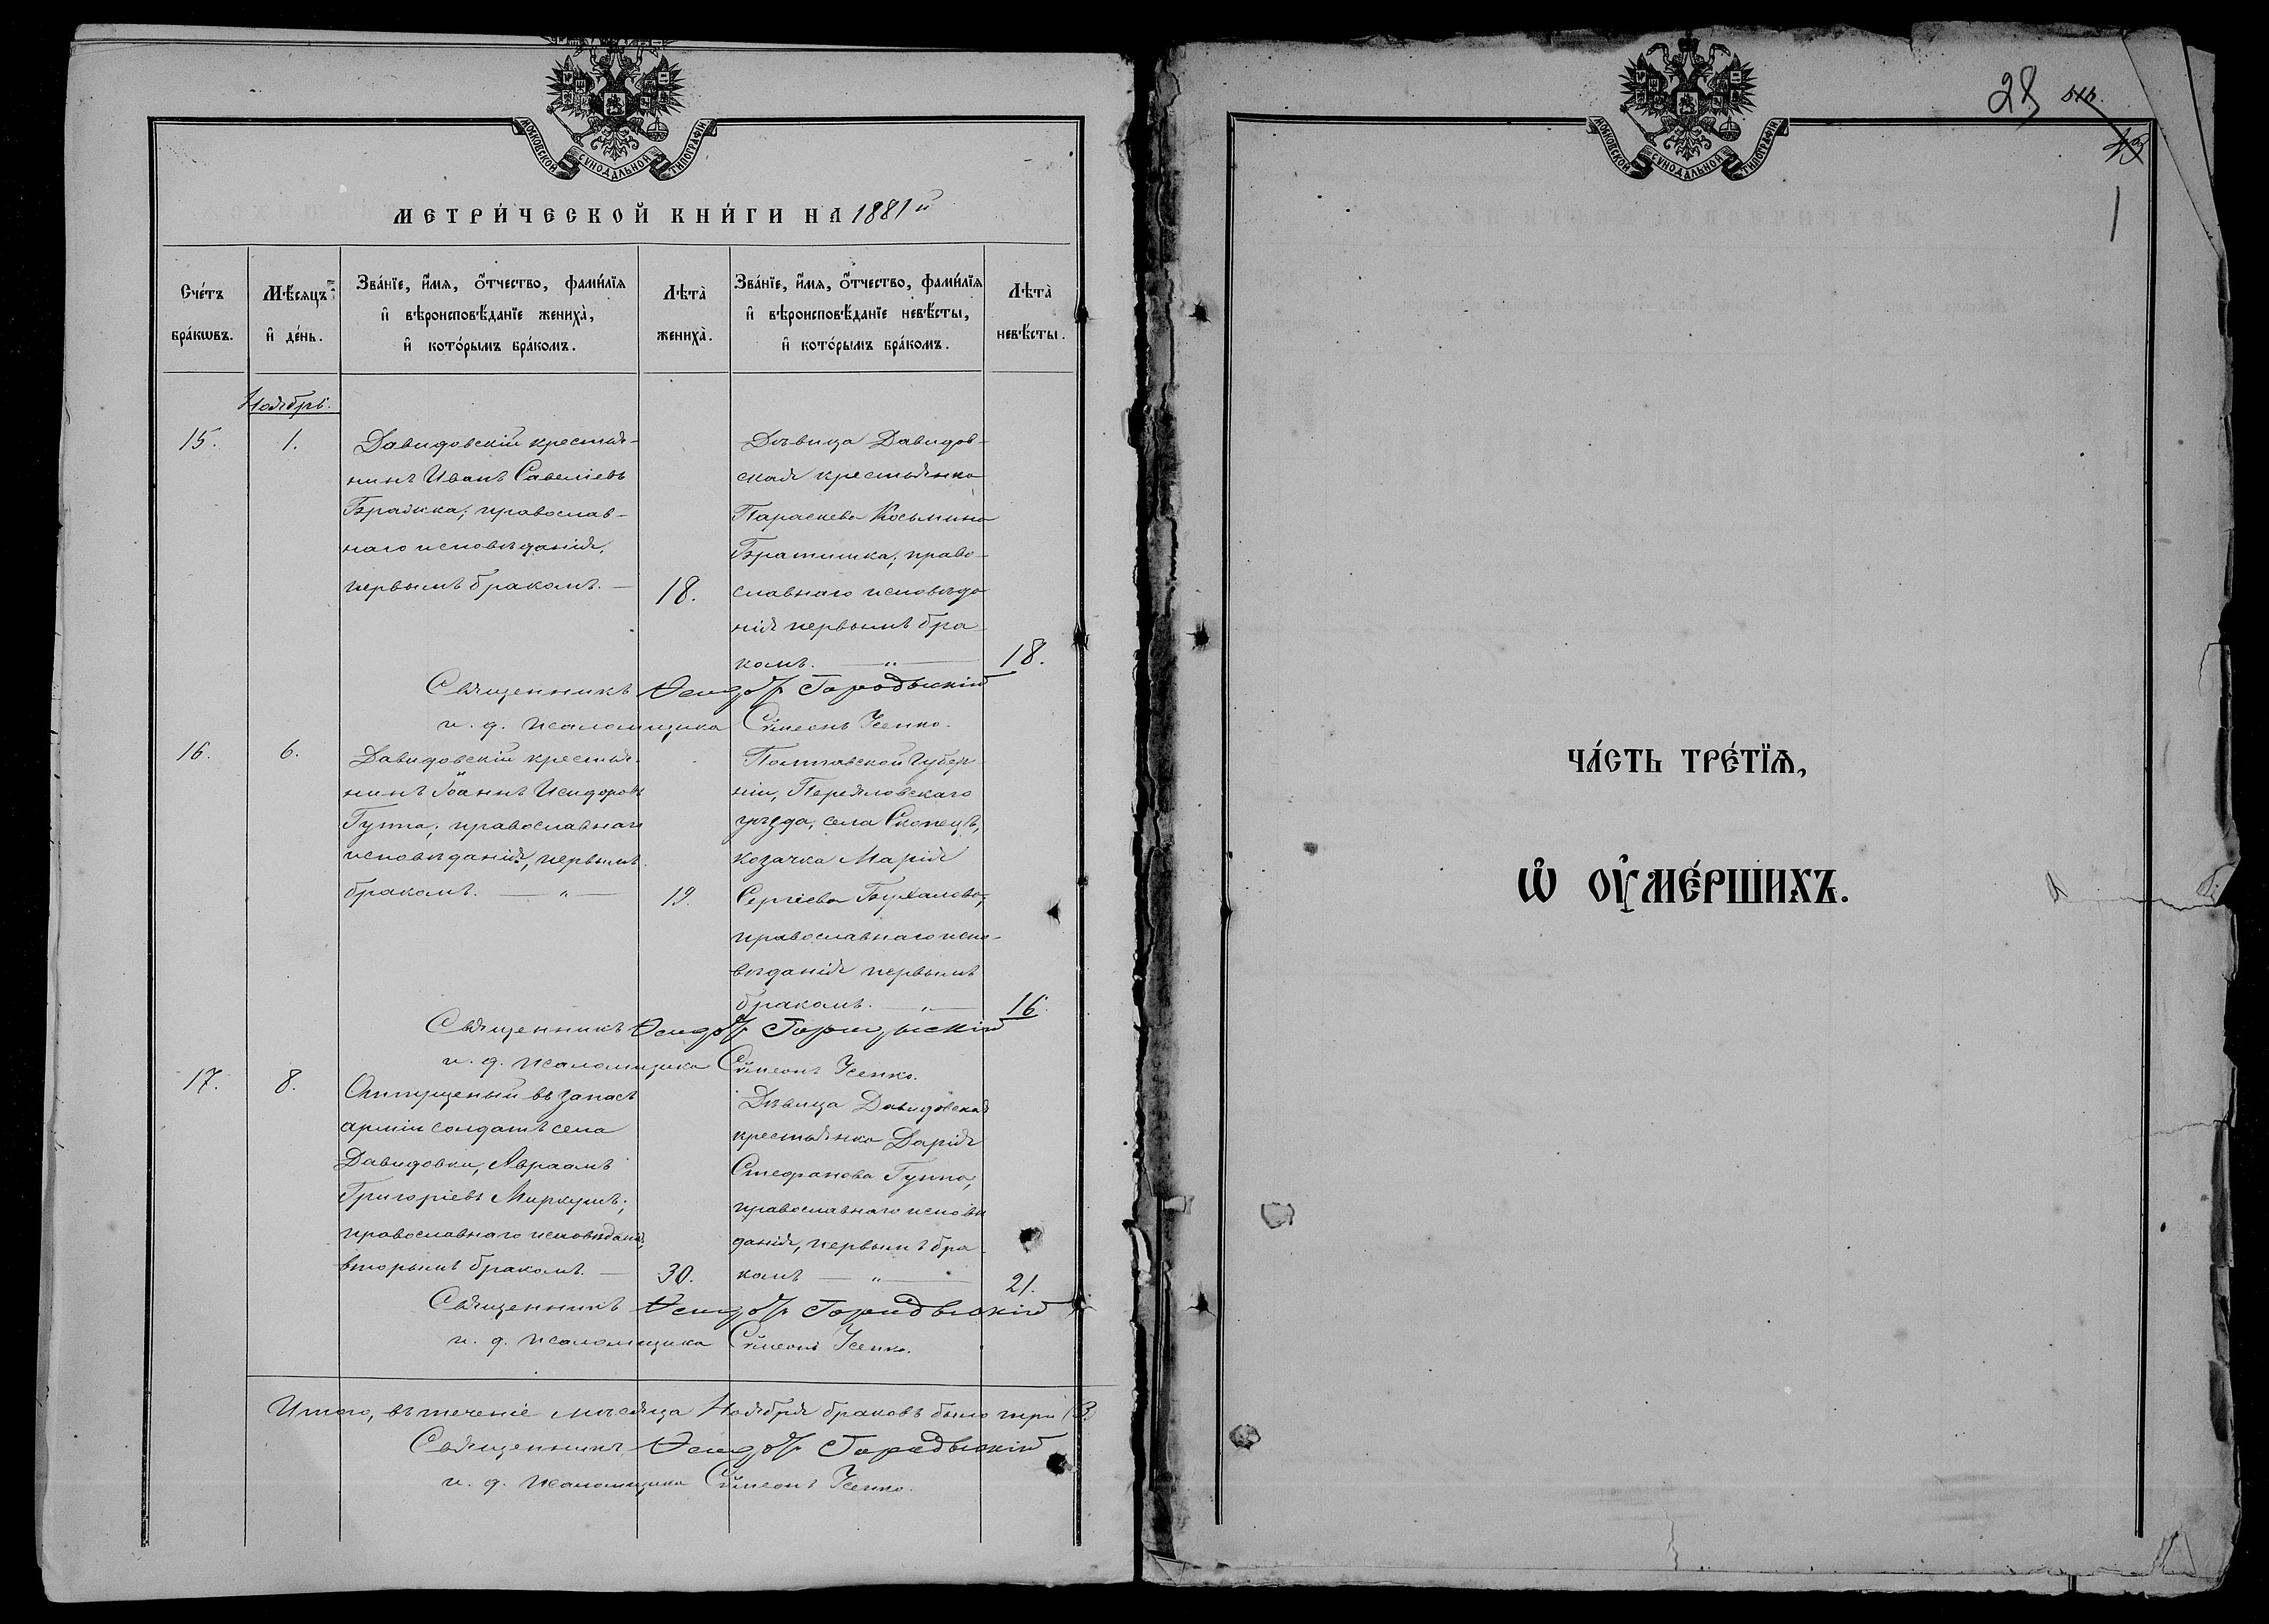 МОСКОВСКОЙ СѴНОДАЛЬНОЙ ТИПОГРАФІИ.
МЕТРИ́ЧЕСКОЙ КНИ́ГИ НА 1881й
Сче́тъ бра́кѡвъ.
Мѣ́сяцъ и҆ де́нь.
Зва́нїе, и҆́мя, ѻ҆́тчество, фами́лїя
и҆ вѣроисповѣ́данїе жениха̀,
и҆ кото́рымъ бра́комъ.
Лѣта̀ жениха̀.
Зва́нїе, и҆́мя, ѻ҆́тчество, фами́лїя
и҆ вѣроисповѣ́данїе невѣ́сты,
и҆ кото́рымъ бра́комъ.
Лѣта̀ невѣ́сты.
Ноябрь.
15.
1.
Давидовскій крестья-
нинъ Иванъ Савеліевъ
православ-
наго исповѣданія,
первымъ бракомъ. —
18.
Дѣвица Давидов-
ская крестьянка
Параскева Косьмина
Братишка; право-
славнаго исповѣда
нія первымъ бра-
комъ. — „ —
18.
Священникъ Исидоръ
и. д. псаломщика Сѵмеонъ Усенко.
16.
6.
Давидовскій крестья-
нинъ Іоаннъ Исидоровъ
Гуппа; православнаго
исповѣданія, первымъ
бракомъ. — „ —
19.
Полтавской Губер-
ніи, Переяловскаго
уѣзда, села Скопецъ,
козачка Марія
Сергіева
православнаго испо-
вѣданія первымъ
бракомъ. — „ —
16.
Священникъ Исидоръ
и. д. псаломщика Сѵмеонъ Усенко.
17.
8.
Отпущеный въ запасъ
арміи солдатъ села
Давидовки, Авраамъ
Григоріевъ
православнаго исповѣданія,
вторымъ бракомъ. —
30.
Дѣвица Давидовская
крестьянка Дарія
Стефанова Гуппа,
православнаго исповѣ
данія, первымъ бра-
комъ — „ —
21.
Священникъ Исидоръ
и. д. псаломщика Сѵмеонъ Усенко.
Итого, въ теченіе мѣсяца Ноября браковъ было три (3)
Священникъ Исидоръ
и. д. псаломщика Сѵмеонъ Усенко.
МОСКОВСКОЙ СѴНОДАЛЬНОЙ ТИПОГРАФІИ.
28
ЧА́СТЬ ТРЕ́ТЇѦ,
Ѡ҆ ОУ҆МЕ́РШИХЪ.